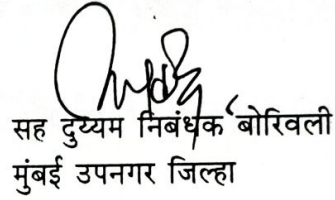 सह दुय्यम निबंधक बोरिवली
मुंबई उपनगर जिल्हा